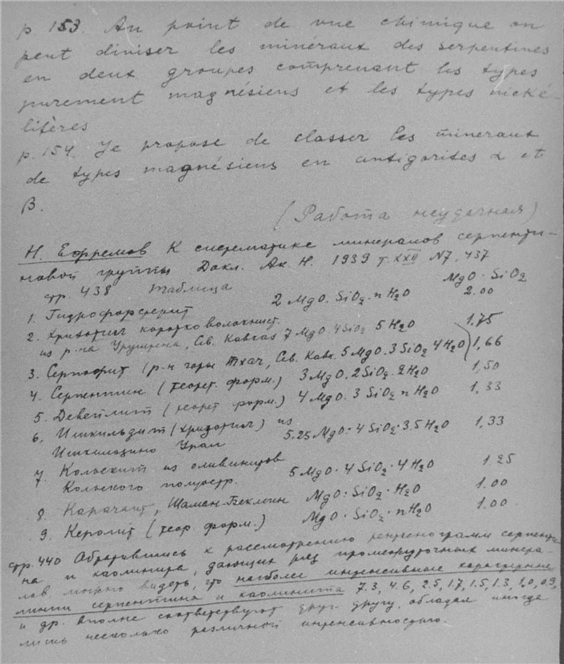 p. 153. Au point de vue chimique on
peut diviser les minéraux des serpentines
en deux groupes comprenant les types
purement magnésiens et les types nické-
lifères
p. 154. Je propose de classer les minéraux
de types magnésiens en antigorites α et
β.
(Работа неудачная)
Н. Ефремов К систематике минералов серпенти-
новой группы Докл. Ак. Н. 1939 т. XXII N7, 437
стр 438 таблица MgO · SiO2
1. Гидрофорстерит 2 MgO. SiO2 · nH2O 2.00
2. Хризотил коротко волокнист.
из р-на Уруштена, Сев. Кавказ 7 MgO 4 SiO2 5 H2O 1,75
3. Серпофит (р-н горы Тхач, Сев. Кавк. 5 MgO. 3 SiO2 4 H2O) 1,66
4. Серпентин (теорет. форм.) 3 MgO. 2 SiO2. 2 H2O 1,50
5. Девейлит (теорет форм.) 4 MgO. 3 SiO2 nH2O 1.33
6. Ишкильдит (хризотил) из
Ишкильдино Урал 5.25 MgO · 4 SiO2 · 3.5 H2O 1,33
7. Кольскит из оливинитов
Кольского полуостр. 5 MgO · 4 SiO2 · 4 H2O 1.25
8. Карачаит, MgO · SiO2 · H2O 1.00
9. Керолит (теор. форм.) MgO · SiO2 · nH2O 1.00
стр. 440 Обратившись к рассмотрению рентгенограмм серпенти-
на и каолинита, дающих ряд промежуточных минера-
лов, можно видеть, что наиболее интенсивные характерные
линии серпентина и каолинита 7.3, 4.6, 2.5, 1.7, 1.5, 1.3, 1.0, 0.9,
и др. вполне соответствуют друг другу, обладая иногда
лишь несколько различной интенсивностью.